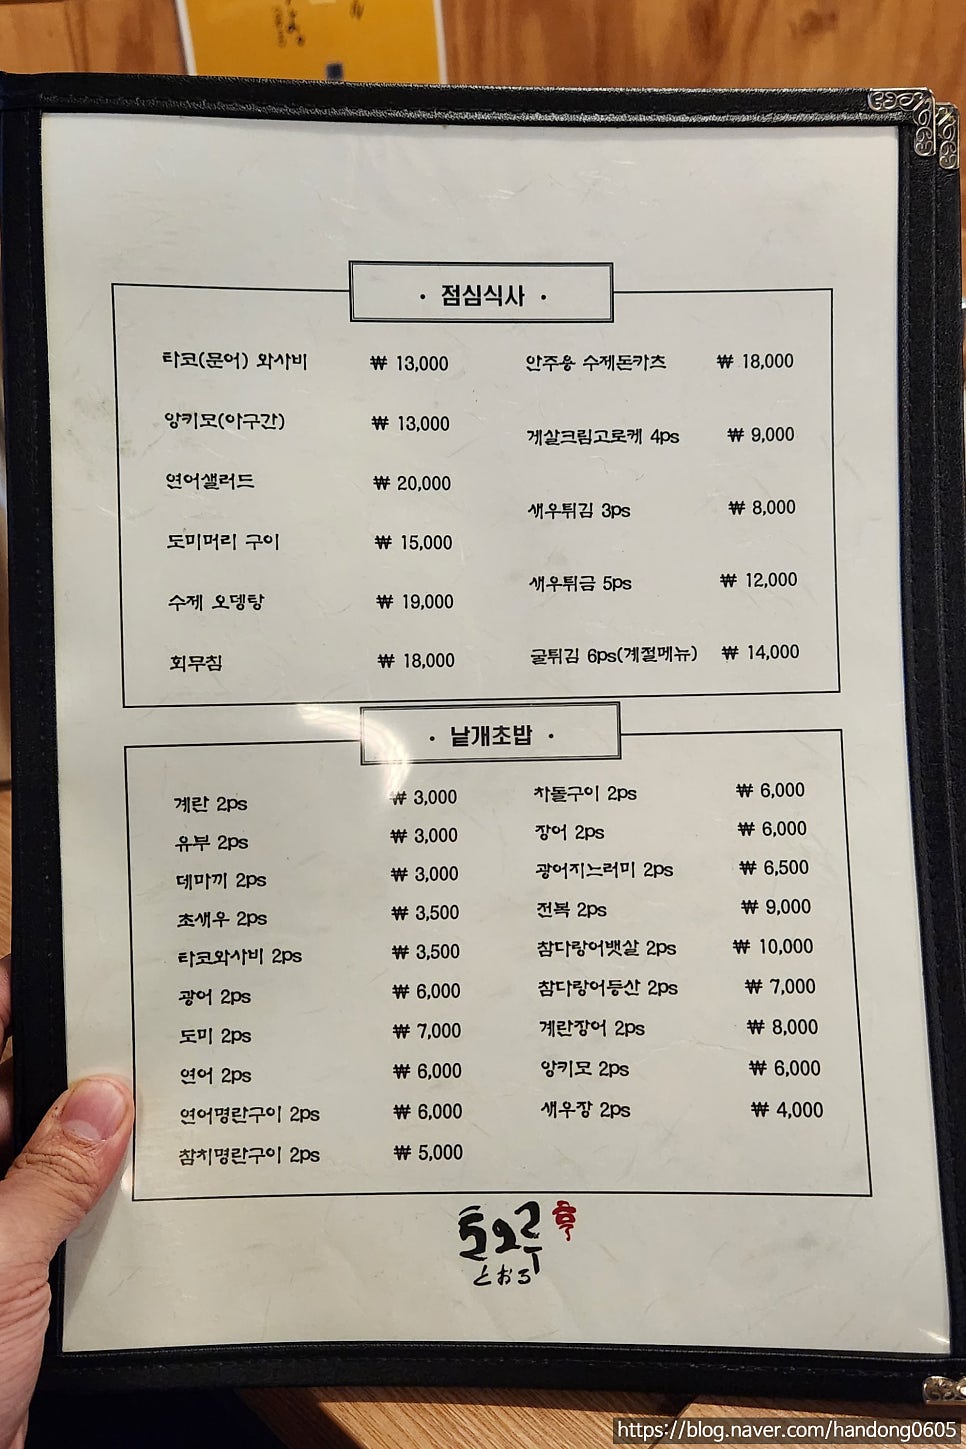 · 점심식사 ·
타코(문어) 와사비 ₩ 13,000
앙키모(아구간) ₩ 13,000
연어샐러드 ₩ 20,000
도미머리 구이 ₩ 15,000
수제 오뎅탕 ₩ 19,000
회무침 ₩ 18,000
안주용 수제돈카츠 ₩ 18,000
게살크림고로케 4ps ₩ 9,000
새우튀김 3ps ₩ 8,000
새우튀금 5ps ₩ 12,000
굴튀김 6ps(계절메뉴) ₩ 14,000
· 낱개초밥 ·
계란 2ps ₩ 3,000
유부 2ps ₩ 3,000
데마끼 2ps ₩ 3,000
초새우 2ps ₩ 3,500
타코와사비 2ps ₩ 3,500
광어 2ps ₩ 6,000
도미 2ps ₩ 7,000
연어 2ps ₩ 6,000
연어명란구이 2ps ₩ 6,000
참치명란구이 2ps ₩ 5,000
차돌구이 2ps ₩ 6,000
장어 2ps ₩ 6,000
광어지느러미 2ps ₩ 6,500
전복 2ps ₩ 9,000
참다랑어뱃살 2ps ₩ 10,000
참다랑어등산 2ps ₩ 7,000
계란장어 2ps ₩ 8,000
앙키모 2ps ₩ 6,000
새우장 2ps ₩ 4,000
토오루
とおる
https://blog.naver.com/handong0605